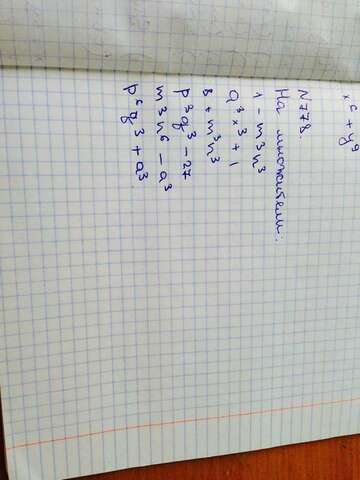 x⁶ + y⁹
N778.
На множители:
1 - m³n³
a³x³ + 1
8 + m³n³
p³q³ - 27
m³n⁶ - a³
p⁶q³ + a³